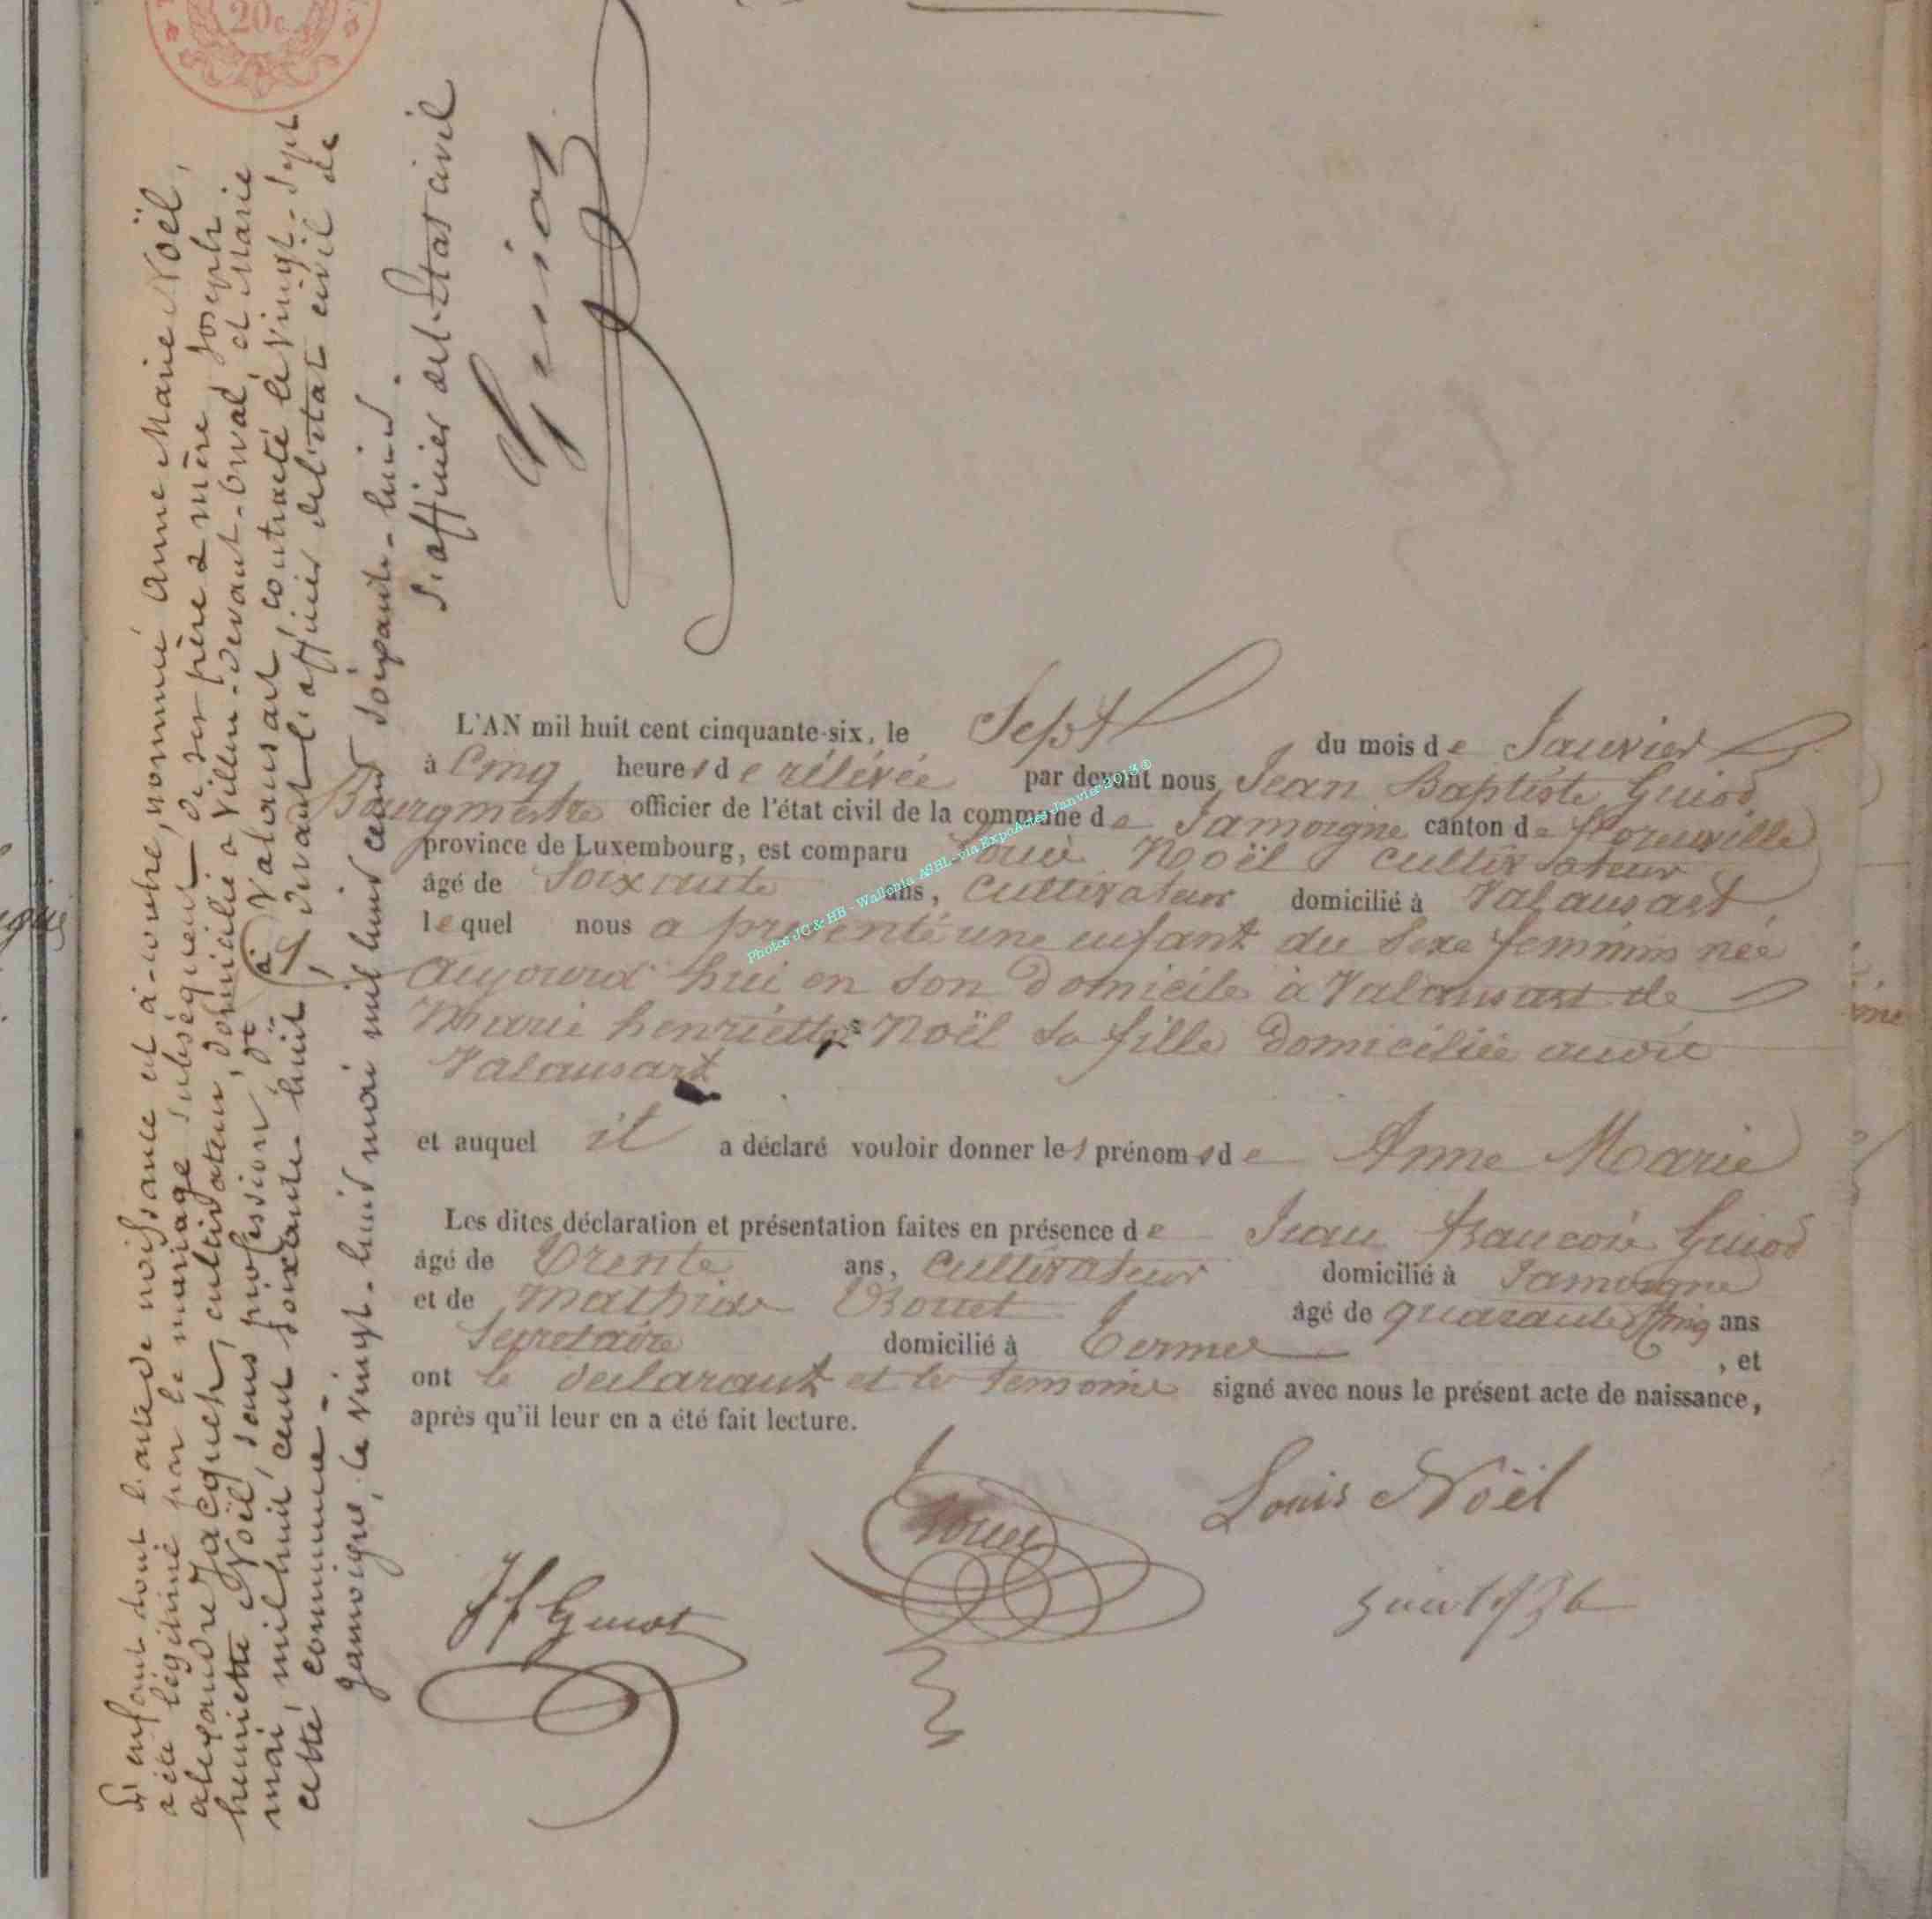 20c
L'enfant dont l'acte de naissance est à-contre, nommé Anne Marie Noël,
a été légitimé par le mariage subséquent de ses père & mère Joseph
alexandre Jacquet, cultivateur, domicilié à Villers-devant-Orval, et Marie
henriette Noël, sans profession, de Valansart, contracté le vingt-sept
mai, mil huit cent soixante-huit, devant l'officier de l'état civil de
cette commune.
Jamoigne, le vingt-huit mai mil huit cent soixante-huit.
L'officier de l'Etat civil
Guiot
L'AN mil huit cent cinquante-six, le Sept du mois de Janvier
à Cinq heures de rélévée par devant nous Jean Baptiste Guiot
Bourgmestre officier de l'état civil de la commune de Jamoigne canton de florenville
province de Luxembourg, est comparu Louis Noël cultivateur
âgé de Soixante ans, Cultivateur domicilié à Valansart
lequel nous a présenté une enfant du Sexe feminin née
aujourd'hui en son Domicile à Valansart de
Marie henriette Noël sa fille Domiciliée audit
Valansart
et auquel il a déclaré vouloir donner les prénoms de Anne Marie
Les dites déclaration et présentation faites en présence de Jean francois Guiot
âgé de Trente ans, Cultivateur domicilié à Jamoigne
et de Mathieu âgé de quarante cinq ans
Secretaire domicilié à Termes , et
ont le declarant et les temoins signé avec nous le présent acte de naissance,
après qu'il leur en a été fait lecture.
Louis Noël
J f Guiot
Photos JC & HB - Wallonia ASBL - via ExpoActes Janvier 2013 ©